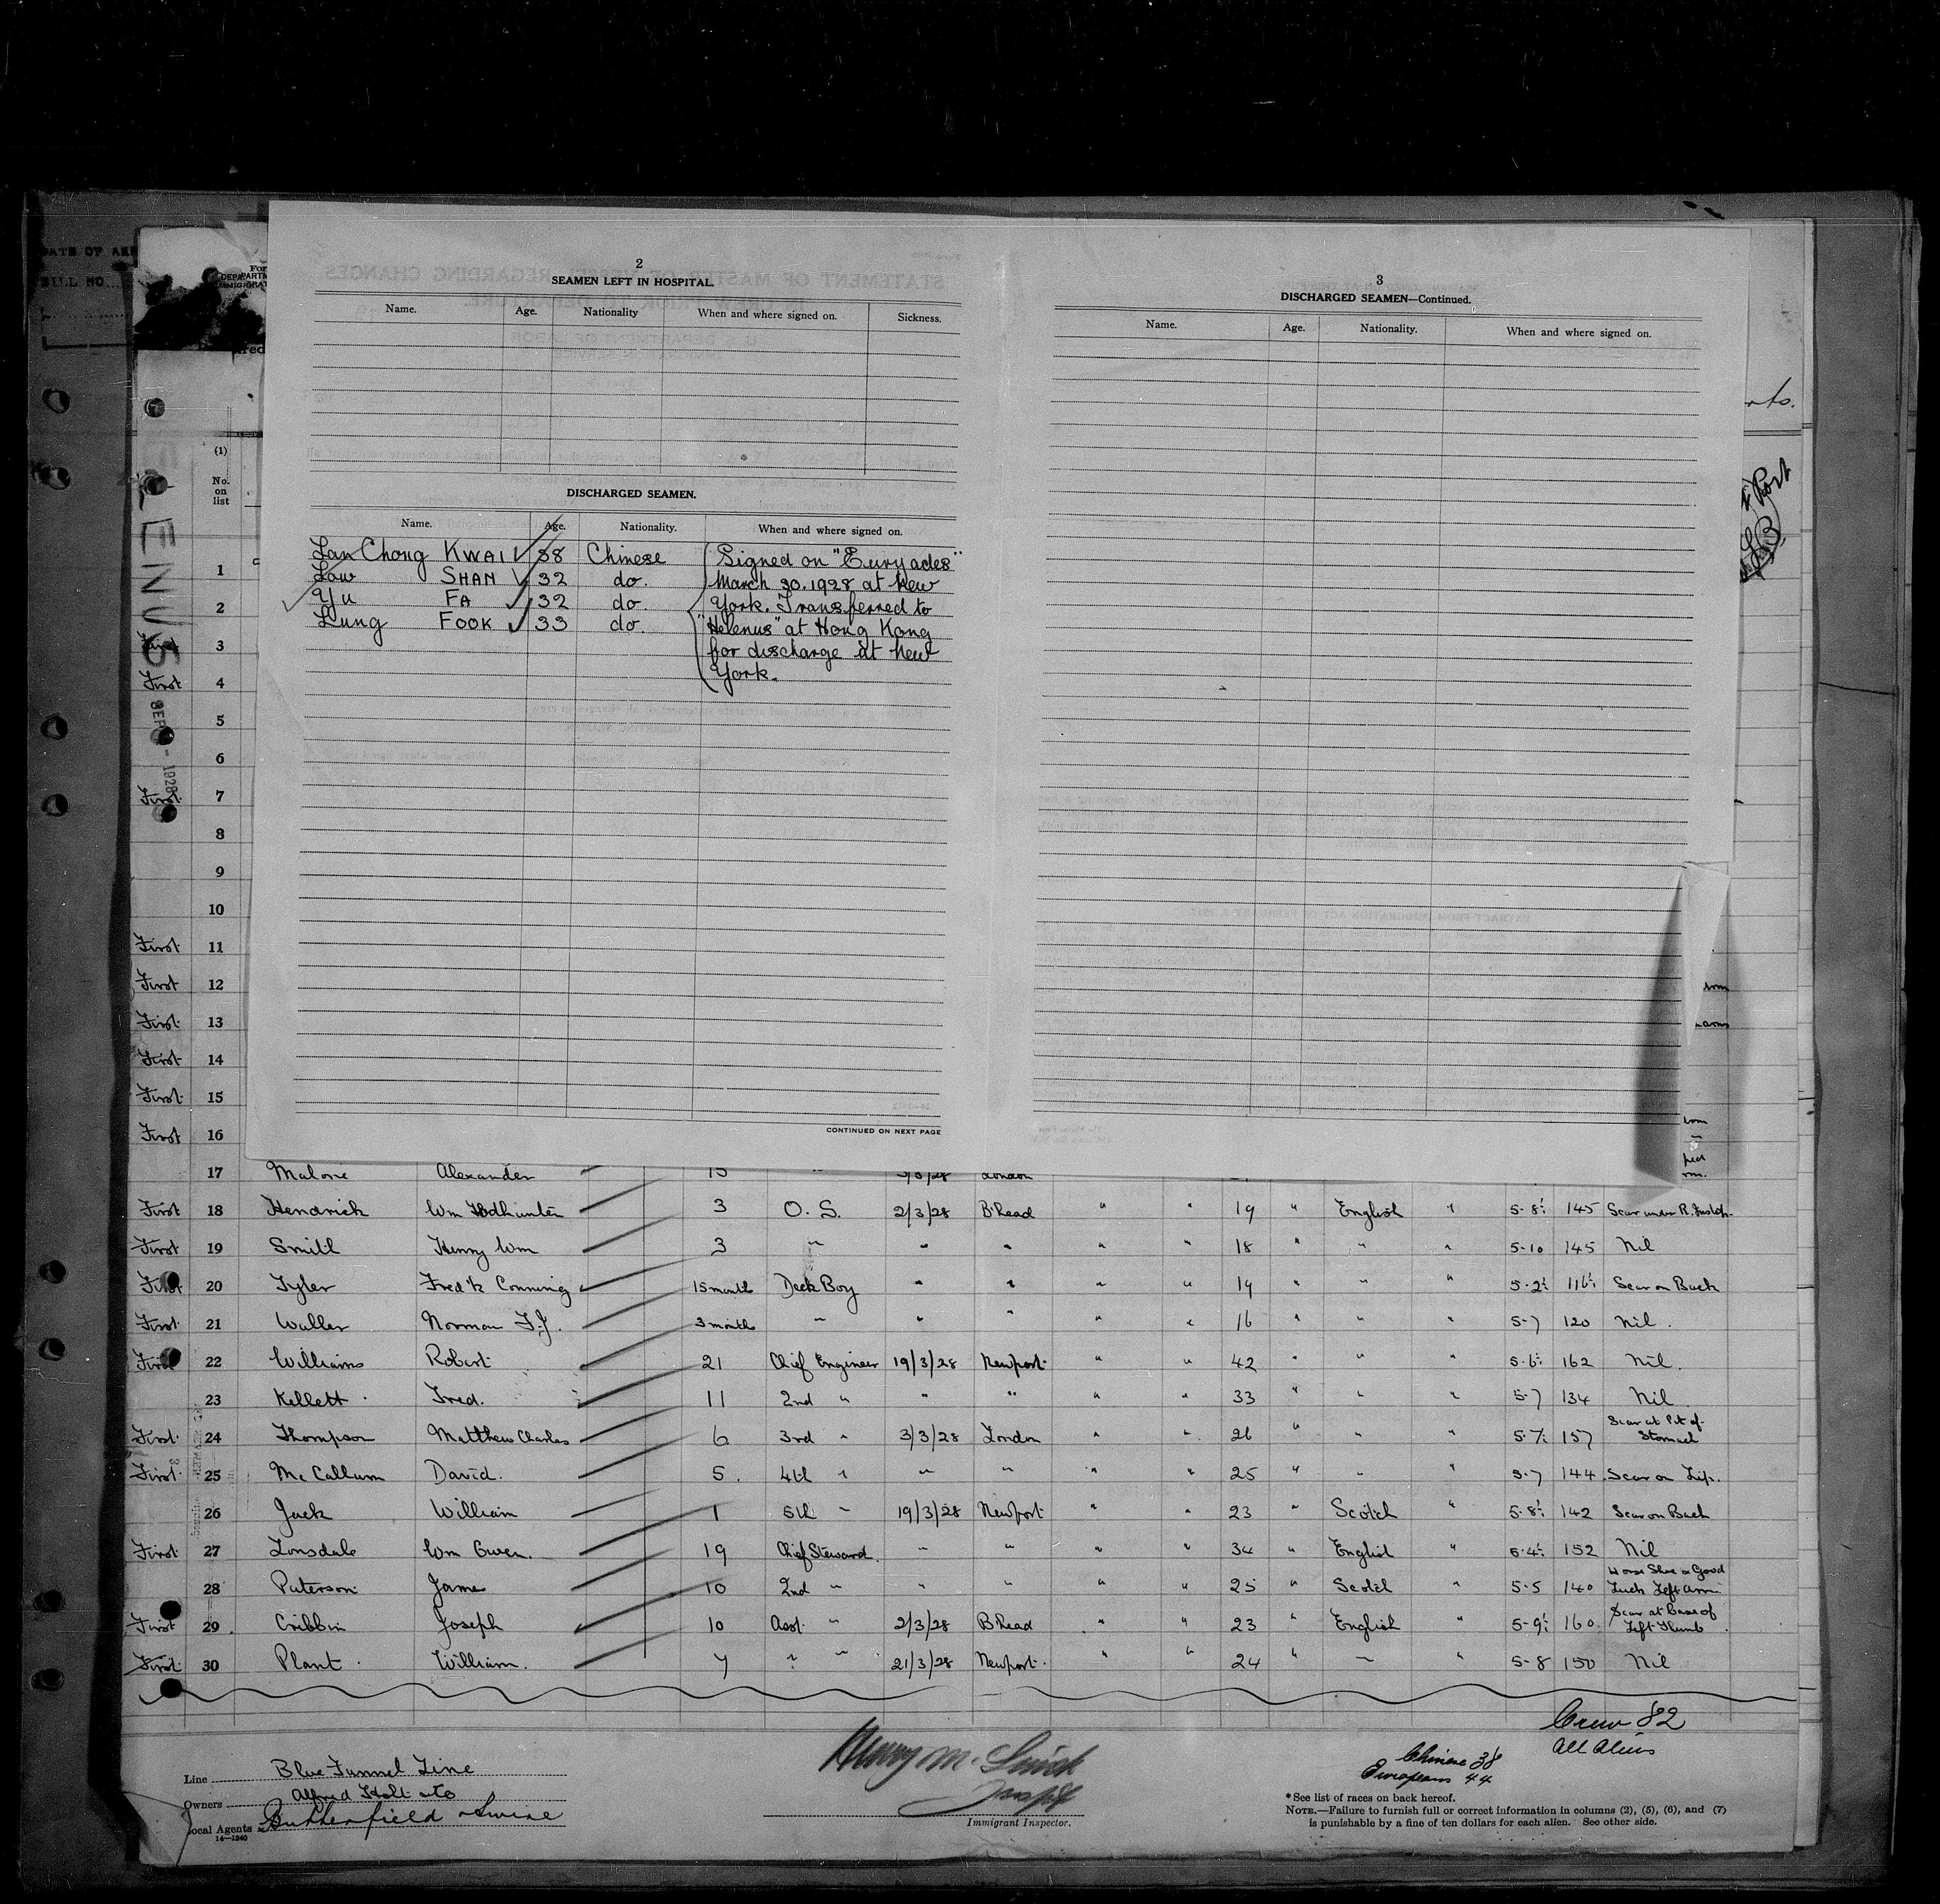 DATE OF
BILL NO.
2
SEAMEN LEFT IN HOSPITAL.
Name. Age. Nationality When and where signed on. Sickness.
DISCHARGED SEAMEN.
Name. Age. Nationality. When and where signed on.
Lan Chong KWAI 38 Chinese Signed on "Euryades"
Law SHAN 32 do. March 30. 1928 at New
Yu FA 32 do. York. Transferred to
Lung FOOK 33 do. "Helenus" at Hong Kong
for discharge at New
York.
CONTINUED ON NEXT PAGE
3
DISCHARGED SEAMEN—Continued.
Name. Age. Nationality. When and where signed on.
(1)
No. on list
1
2
First 3
First 4
5
6
First 7
8
9
10
First 11
First 12
First 13
First 14
First 15
First 16
17 Malone Alexander 15 " London
First 18 Hendrick Wm 3 O. S. 2/3/28 B'head " " 19 " English " 145
First 19 Smith Henry Wm 3 " " " " " 18 " " " 5-10 145 Nil
First 20 Tyler Fred'k 15 months Deck Boy " " " " 19 " " " Scar on Back
First 21 Waller Norman 3 months " " " " " 16 " " " 5-7 120 Nil.
First 22 Williams Robert 21 Chief Engineer 19/3/28 Newport " " 42 " " " 162 Nil.
23 Kellett Fred. 11 2nd " " " " " 33 " " " 5-7 134 Nil
First 24 Thompson Matthew Charles 6 3rd " 3/3/28 London " " 26 " " " 157 Scar at Pit of Stomach
First 25 Mc Callum David. 5. 4th " " " " " 25 " " " 5-7 144 Scar on Lip.
26 Jack William 1 5th " 19/3/28 Newport " " 23 " Scotch " 142 Scar on Back
First 27 Lonsdale Wm Owen. 19 Chief Steward. " " " " 34 " English " 152 Nil
28 Paterson James 10 2nd " " " " " 25 " Scotch " 5-5 140 Horse Shoe & Good Luck Left Arm
First 29 Cribbin Joseph 10 Asst. " 2/3/28 B'head " " 23 " English " 160 Scar at Base of Left Thumb
First 30 Plant William. 7 " " 21/3/28 Newport. " " 24 " " " 5-8 150 Nil
Crew 82
All Aliens
Chinese 38
Europeans 44
Line Blue Funnel Line
Owners Alfred Holt & Co
Local Agents Butterfield & Swire
14—1240
Immigrant Inspector.
*See list of races on back hereof.
NOTE.—Failure to furnish full or correct information in columns (2), (5), (6), and (7)
is punishable by a fine of ten dollars for each alien. See other side.